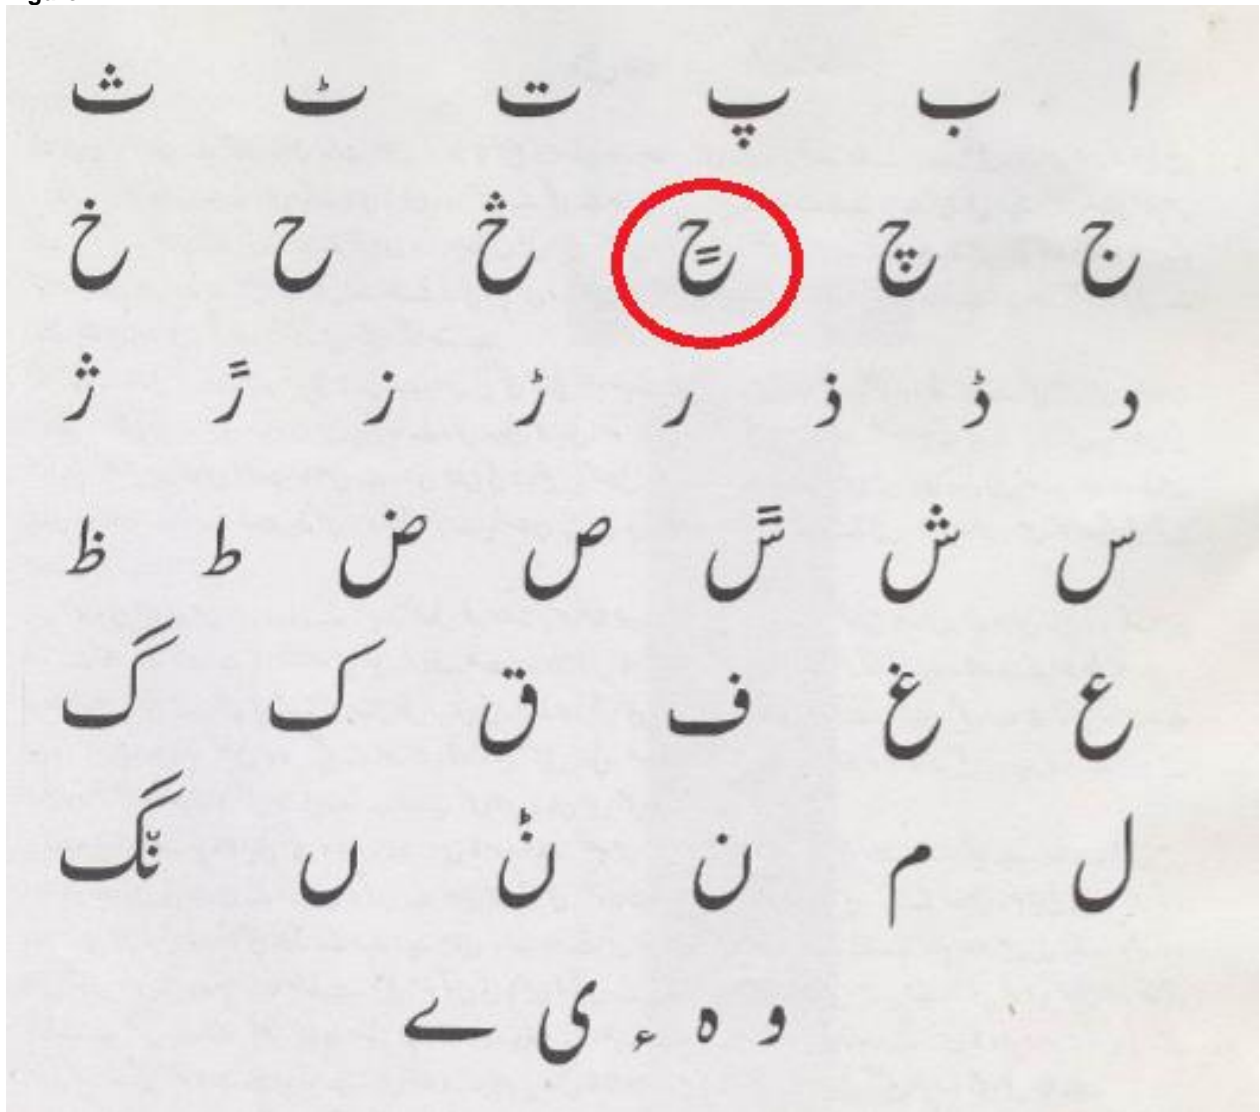 ا ب پ ت ٹ ث
ج چ حٍ څ ح خ
د ڈ ذ ر ڑ ز رً ژ
س ش سً ص ض ط ظ
ع غ ف ق ک گ
ل م ن ݨ ں نگ
و ہ ء ی ے